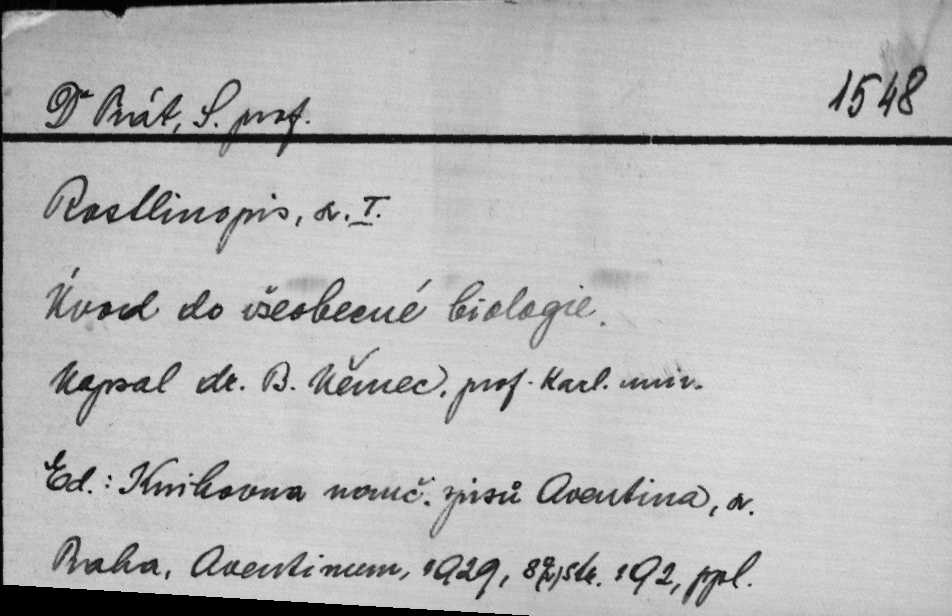 Dr Prát, S. prof.
1548
Rostlinopis, sv. I.
Úvod do všeobecné biologie.
Napsal dr. B. Němec, prof. Karl. univ.
Ed.: Knihovna nauč. spisů Aventina, sv.
Praha, Aventinum, 1929, 8° str. 192, ppl.